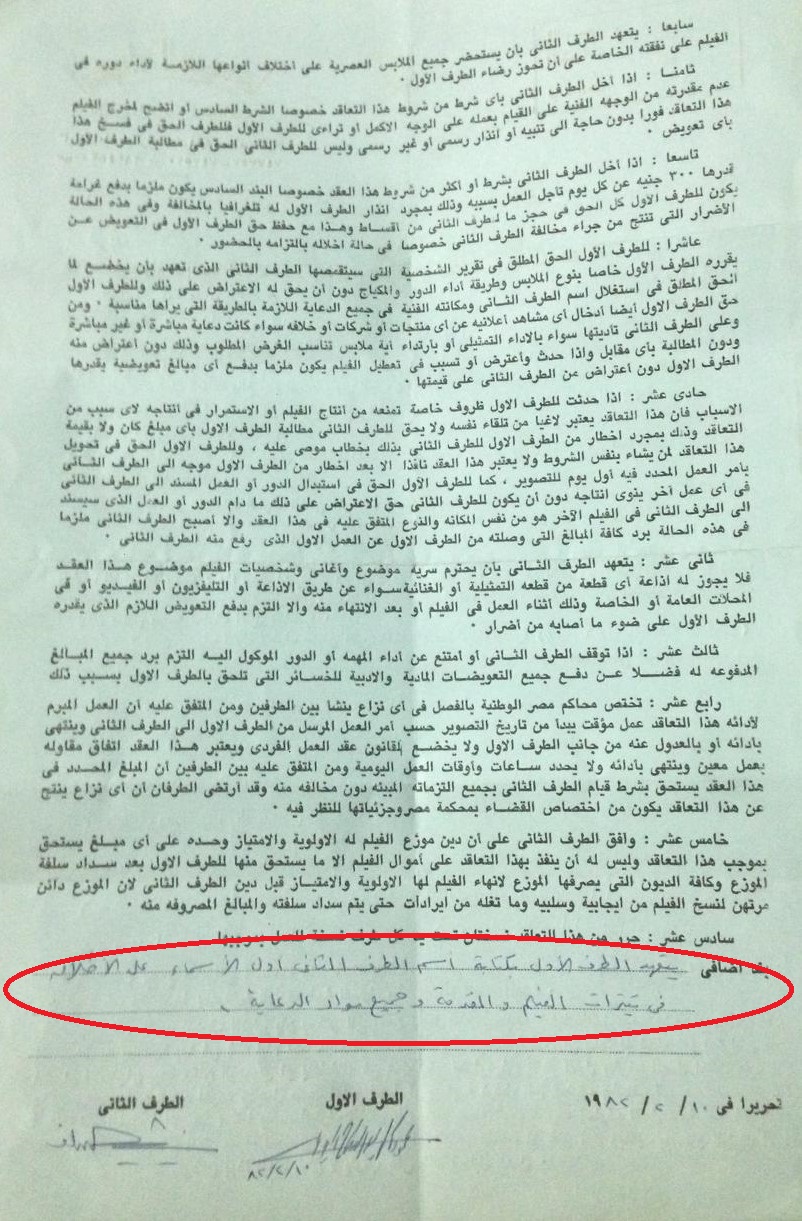 سابعا : يتعهد الطرف الثانى بأن يستحضر جميع الملابس العصرية على اختلاف انواعها اللازمة لأداء دوره فى
الفيلم على نفقته الخاصة على أن تحوز رضاء الطرف الأول .
ثامنا : اذا أخل الطرف الثانى بأى شرط من شروط هذا التعاقد خصوصا الشرط السادس أو اتضح لمخرج الفيلم
عدم مقدرته من الوجهه الفنية على القيام بعمله على الوجه الاكمل أو تراءى للطرف الأول فللطرف الحق فى فسخ هذا
هذا التعاقد فورا بدون حاجة الى تنبيه أو انذار رسمى أو غير رسمى وليس للطرف الثانى الحق فى مطالبة الطرف الأول
بأى تعويض .
تاسعا : اذا أخل الطرف الثانى بشرط أو أكثر من شروط هذا العقد خصوصا البند السادس يكون ملزما بدفع غرامة
قدرها ٣٠٠ جنيه عن كل يوم تاجل العمل بسببه وذلك بمجرد انذار الطرف الأول له تلغرافيا بالمخالفة وفى هذه الحالة
يكون للطرف الأول كل الحق فى حجز ما للطرف الثانى من أقساط وهذا مع حفظ حق الطرف الأول فى التعويض عن
الأضرار التى تنتج من جراء مخالفة الطرف الثانى خصوصا فى حالة اخلاله بالتزامه بالحضور .
عاشرا : للطرف الأول الحق المطلق فى تقرير الشخصية التى سيتقمصها الطرف الثانى الذى تعهد بأن يخضع لما
يقرره الطرف الأول خاصا بنوع الملابس وطريقة أداء الدور والمكياج دون أن يحق له الاعتراض على ذلك وللطرف الأول
الحق المطلق فى استغلال اسم الطرف الثانى ومكانته الفنية فى جميع الدعاية اللازمة بالطريقة التى يراها مناسبة . ومن
حق الطرف الأول أيضا ادخال أى مشاهد اعلانيه عن أى منتجات أو شركات أو خلافه سواء كانت دعاية مباشرة أو غير مباشرة
وعلى الطرف الثانى تاديتها سواء بالاداء التمثيلى أو بارتداء أية ملابس تناسب الغرض المطلوب وذلك دون أعتراض منه
ودون المطالبة بأى مقابل واذا حدث وأعترض أو تسبب فى تعطيل الفيلم يكون ملزما بدفع أى مبالغ تعويضية يقدرها
الطرف الاول دون أعتراض من الطرف الثانى على قيمتها .
حادى عشر : اذا حدثت للطرف الاول ظروف خاصة تمنعه من انتاج الفيلم أو الاستمرار فى أنتاجه لاى سبب من
الاسباب فأن هذا التعاقد يعتبر لاغيا من تلقاء نفسه ولا يحق للطرف الثانى مطالبة الطرف الأول بأى مبلغ كان ولا بقيمة
التعاقد وذلك بمجرد اخطار من الطرف الاول للطرف الثانى بذلك بخطاب موصى عليه ، وللطرف الاول الحق فى تحويل
هذا التعاقد لمن يشاء بنفس الشروط ولا يعتبر هذا العقد نافذا الا بعد اخطار من الطرف الاول موجه الى الطرف الثانى
بأمر العمل المحدد فيه أول يوم للتصوير ، كما للطرف الأول الحق فى استبدال الدور أو العمل المسند الى الطرف الثانى
فى أى عمل آخر ينوى انتاجه دون أن يكون للطرف الثانى حق الاعتراض على ذلك ما دام الدور أو العمل الذى سيسند
الى الطرف الثانى فى الفيلم الآخر هو من نفس المكانه والنوع المتفق عليه فى هذا العقد والا أصبح الطرف الثانى ملزما
فى هذه الحالة برد كافة المبالغ التى وصلته من الطرف الاول عن العمل الاول الذى رفع منه الطرف الثانى .
ثانى عشر : يتعهد الطرف الثانى بأن يحترم سرية موضوع وأغانى وشخصيات الفيلم موضوع هذا العقد
فلا يجوز له اذاعة أى قطعة من قطعه التمثيلية أو الغنائية سواء عن طريق الاذاعة أو التليفزيون أو الفيديو أو فى
المحلات العامة أو الخاصة وذلك أثناء العمل فى الفيلم أو بعد الانتهاء منه والا التزم بدفع التعويض اللازم الذى يقدره
الطرف الأول على ضوء ما أصابه من أضرار .
ثالث عشر : اذا توقف الطرف الثانى أو أمتنع عن أداء المهمه أو الدور الموكول اليه التزم برد جميع المبالغ
المدفوعه له فضلا عن دفع جميع التعويضات المادية والادبية للخسائر التى تلحق بالطرف الاول بسبب ذلك
رابع عشر : تختص محاكم مصر الوطنية بالفصل فى أى نزاع ينشا بين الطرفين ومن المتفق عليه أن العمل المبرم
لأدائه هذا التعاقد عمل مؤقت يبدا من تاريخ التصوير حسب أمر العمل المرسل من الطرف الاول الى الطرف الثانى وينتهى
بأدائه أو بالعدول عنه من جانب الطرف الاول ولا يخضع لقانون عقد العمل الفردى ويعتبر هذا العقد اتفاق مقاوله
بعمل معين وينتهى بأدائه ولا يحدد ساعات وأوقات العمل اليومية ومن المتفق عليه بين الطرفين أن المبلغ المحدد فى
هذا العقد يستحق بشرط قيام الطرف الثانى بجميع التزماته المبينه دون مخالفه منه وقد أرتضى الطرفان أن أى نزاع ينتج
عن هذا التعاقد يكون من اختصاص القضاء بمحكمة مصر وجزئياتها للنظر فيه .
خامس عشر : وافق الطرف الثانى على أن دين موزع الفيلم له الاولوية والامتياز وحده على أى مبلغ يستحق
بموجب هذا التعاقد وليس له أن ينفذ بهذا التعاقد على أموال الفيلم الا ما يستحق منها للطرف الاول بعد سداد سلفة
الموزع وكافة الديون التى يصرفها الموزع لانهاء الفيلم لها الاولوية والامتياز قبل دين الطرف الثانى لان الموزع دائن
مرتهن لنسخ الفيلم من ايجابية وسلبيه وما تغله من ايرادات حتى يتم سداد سلفته والمبالغ المصروفه منه .
سادس عشر : حرر من هذا التعاقد نسختان تحت يد كل طرف نسخة للعمل بموجبها
بند اضافى يتعهد الطرف الأول بكتابة أسم الطرف الثانى أول الأسماء على الاطلاق
فى تيترات الفيلم والمقدمة وجميع مواد الدعاية .
تحريرا فى ١٠ / ٢ / ١٩٨٢
الطرف الاول
الطرف الثانى
٨٢/٢/١٠